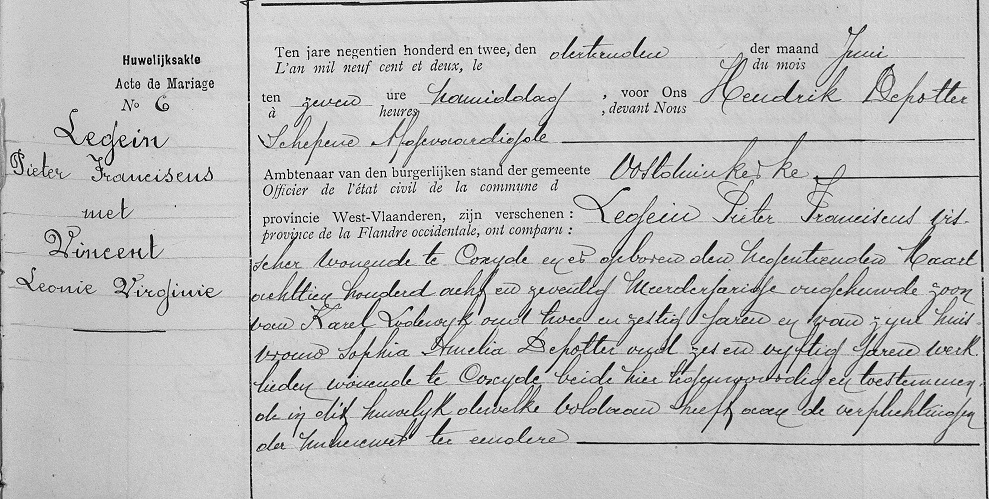 Huwelijksakte
Acte de Mariage
No 6
Legein
Pieter Franciscus
met
Vincent
Leonie Virginie
Ten jare negentien honderd en twee, den dertienden der maand Juni
L'an mil neuf cent et deux, le du mois
ten zeven ure namiddag, voor Ons Hendrik Depotter
à heures, devant Nous
Schepene Afgevaardigde
Ambtenaar van den burgerlijken stand der gemeente Oostduinkerke
Officier de l'état civil de la commune d
provincie West-Vlaanderen, zijn verschenen : Legein Pieter Franciscus vis-
province de la Flandre occidentale, ont comparu :
scher wonende te Coxyde en er geboren den negentienden Maart
achttien honderd acht en zeventig meerderjarige ongehuwde zoon
van Karel Lodewyk oud twee en zestig jaren en van zyne huis-
vrouw Sophia Amelia Depotter oud zes en vyftig jaren werk
lieden wonende te Coxyde beide hier tegenwoordig en toestemmen-
de in dit huwelyk dewelke voldaan heeft aan de verplichtingen
der militiewet te eendere